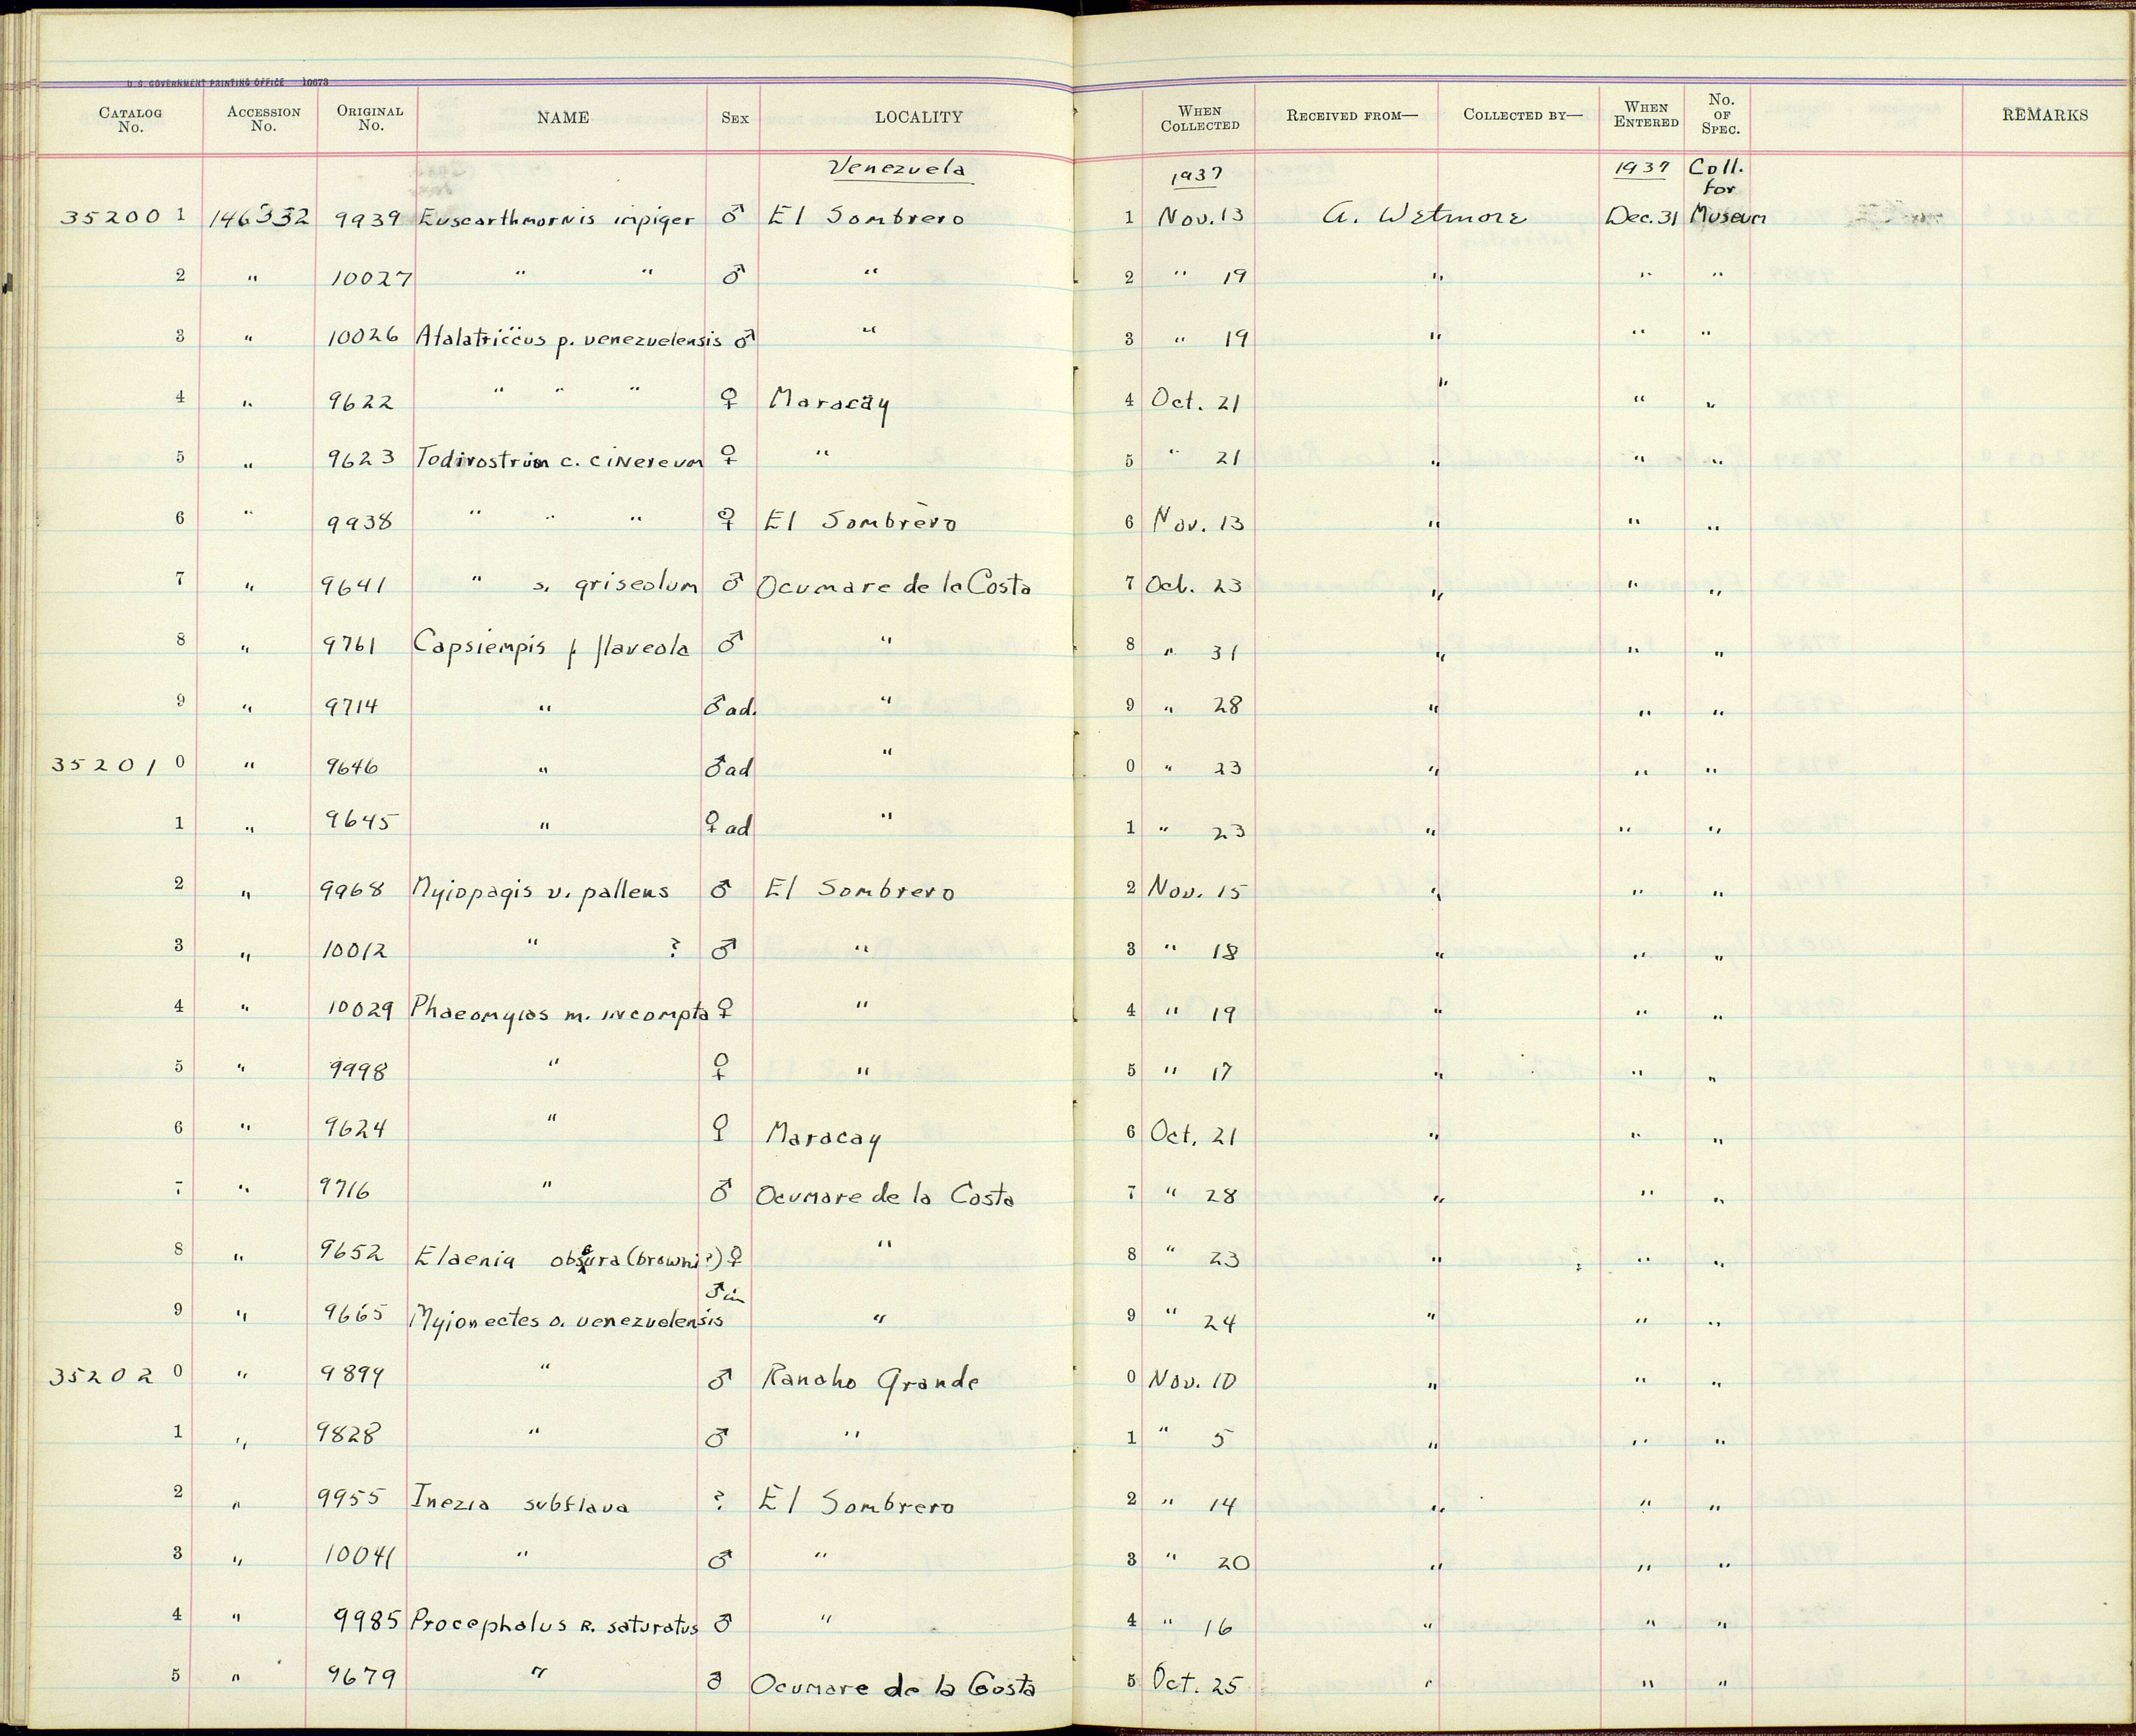 U.S. GOVERNMENT PRINTING OFFICE 10673
CATALOG No. ACCESSION No. ORIGINAL No. NAME SEX LOCALITY WHEN COLLECTED RECEIVED FROM— COLLECTED BY— WHEN ENTERED No. OF SPEC. REMARKS
Venezuela 1937 1937 Coll. for
35200 1 146332 9939 Euscarthmornis impiger ♂ El Sombrero 1 Nov. 13 A. Wetmore Dec. 31 Museum
2 " 10027 " " ♂ " 2 " 19 " " "
3 " 10026 Atalatriccus p. venezuelensis ♂ " 3 " 19 " " "
4 " 9622 " " " ♀ Maracay 4 Oct. 21 " " "
5 " 9623 Todirostrum c. cinereum ♀ " 5 " 21 " " "
6 " 9938 " " " ♀ El Sombrero 6 Nov. 13 " " "
7 " 9641 " s. griseolum ♂ Ocumare de la Costa 7 Oct. 23 " " "
8 " 9761 Capsiempis f flaveola ♂ " 8 " 31 " " "
9 " 9714 " ♂ad. " 9 " 28 " " "
35201 0 " 9646 " ♂ad " 0 " 23 " " "
1 " 9645 " ♀ad " 1 " 23 " " "
2 " 9968 Myiopagis v. pallens ♂ El Sombrero 2 Nov. 15 " " "
3 " 10012 " ? ♂ " 3 " 18 " " "
4 " 10029 Phaeomyias m. incompta ♀ " 4 " 19 " " "
5 " 9998 " ♀ " 5 " 17 " " "
6 " 9624 " ♀ Maracay 6 Oct. 21 " " "
7 " 9716 " ♂ Ocumare de la Costa 7 " 28 " " "
8 " 9652 Elaenia obscura (browni?) ♀ " 8 " 23 " " "
9 " 9665 Myionectes o. venezuelensis ♂im " 9 " 24 " " "
35202 0 " 9899 " ♂ Rancho Grande 0 Nov. 10 " " "
1 " 9828 " ♂ " 1 " 5 " " "
2 " 9955 Inezia subflava ? El Sombrero 2 " 14 " " "
3 " 10041 " ♂ " 3 " 20 " " "
4 " 9985 Procephalus R. saturatus ♂ " 4 " 16 " " "
5 " 9679 " ♂ Ocumare de la Costa 5 Oct. 25 " " "